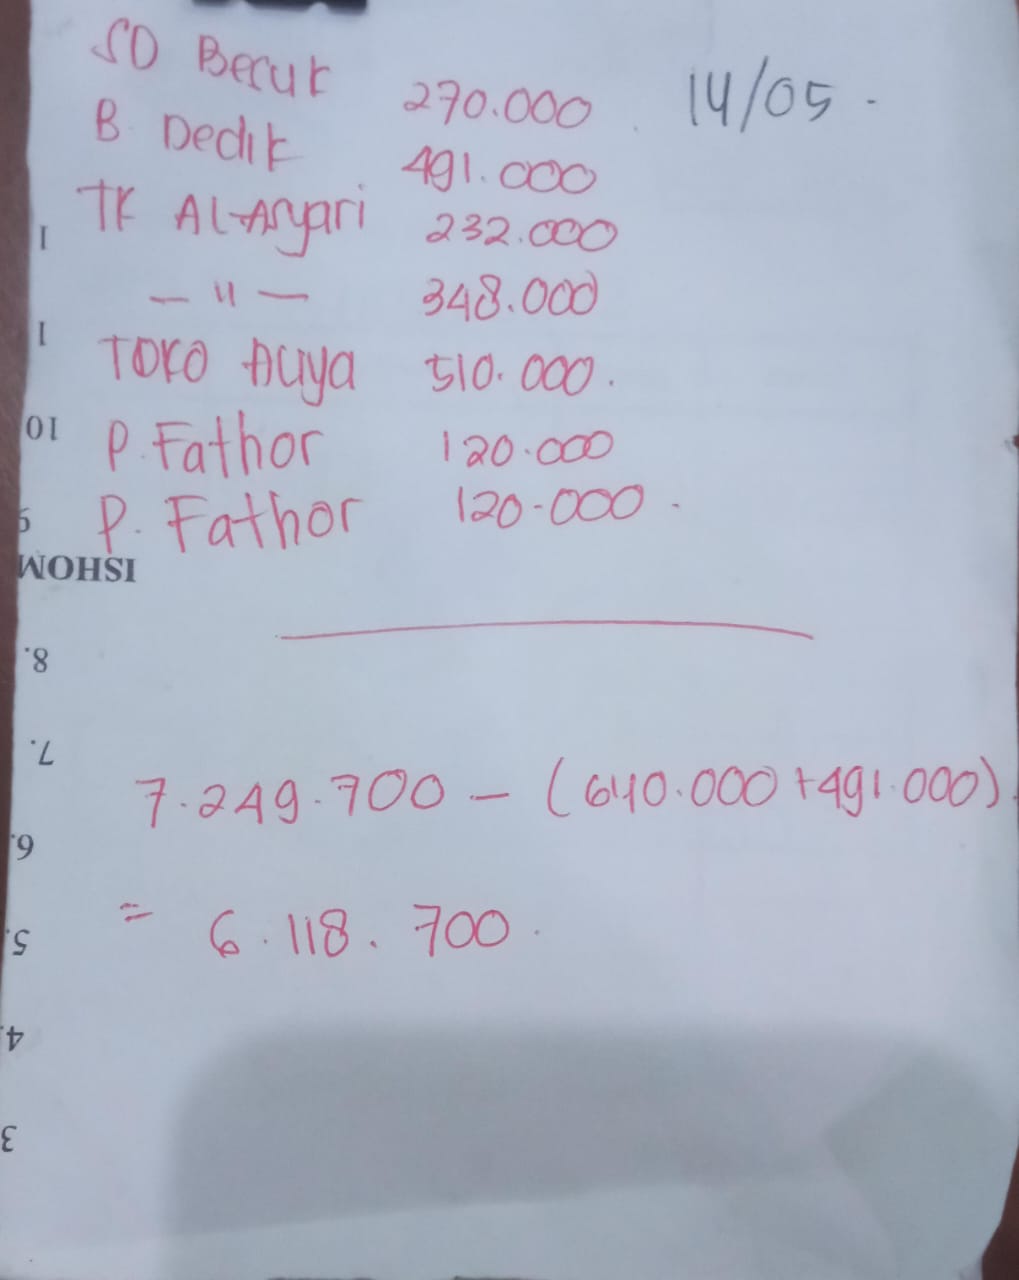 SD Beruk 270.000 14/05.
B. Dedik 491.000
TK AL-Asyari 232.000
— " — 348.000
TOKO Auya 510.000.
P. Fathor 120.000
P. Fathor 120.000.
7.249.700 - (640.000 + 491.000)
= 6.118.700.
1
1
10
9
ISHOM
8.
7.
6.
5.
4.
3